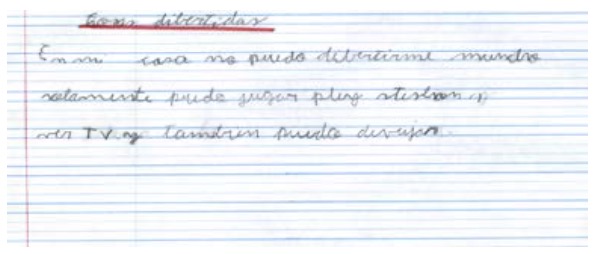 Cosas dibertidas
En mi casa no puedo diberirme mundro
solamente puedo jugar pley steshon y
ver TV. y tamdien puedo devujar.